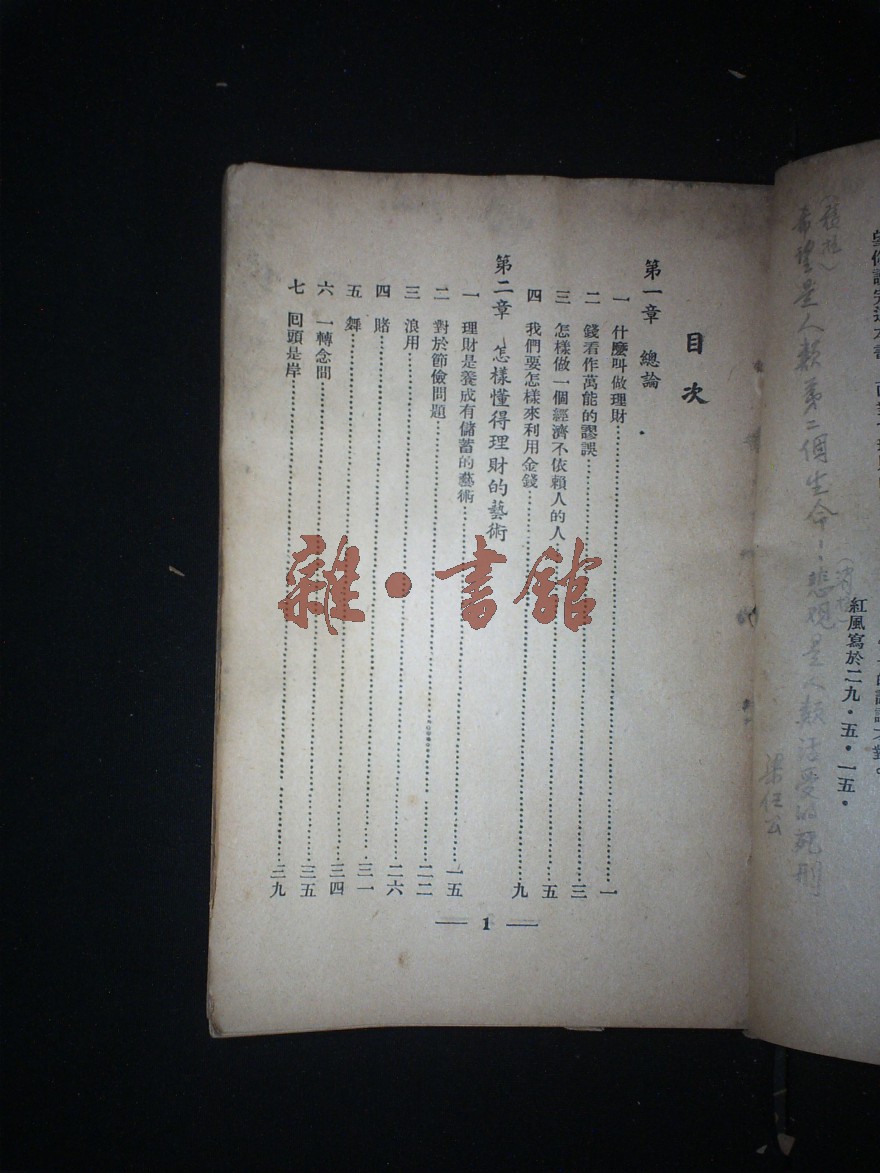 紅風寫於二九·五·一五·
希望是人類第二個生命！悲觀是人類活受的死刑
梁任公
目次
第一章 總論
一 什麼叫做理財……一
二 錢看作萬能的謬誤……三
三 怎樣做一個經濟不依賴人的人……五
四 我們要怎樣來利用金錢……九
第二章 怎樣懂得理財的藝術
一 理財是養成有儲蓄的藝術……一五
二 對於節儉問題……二二
三 浪用……二六
四 賭……三一
五 舞……三四
六 一轉念間……三五
七 回頭是岸……三九
1
雜·書館